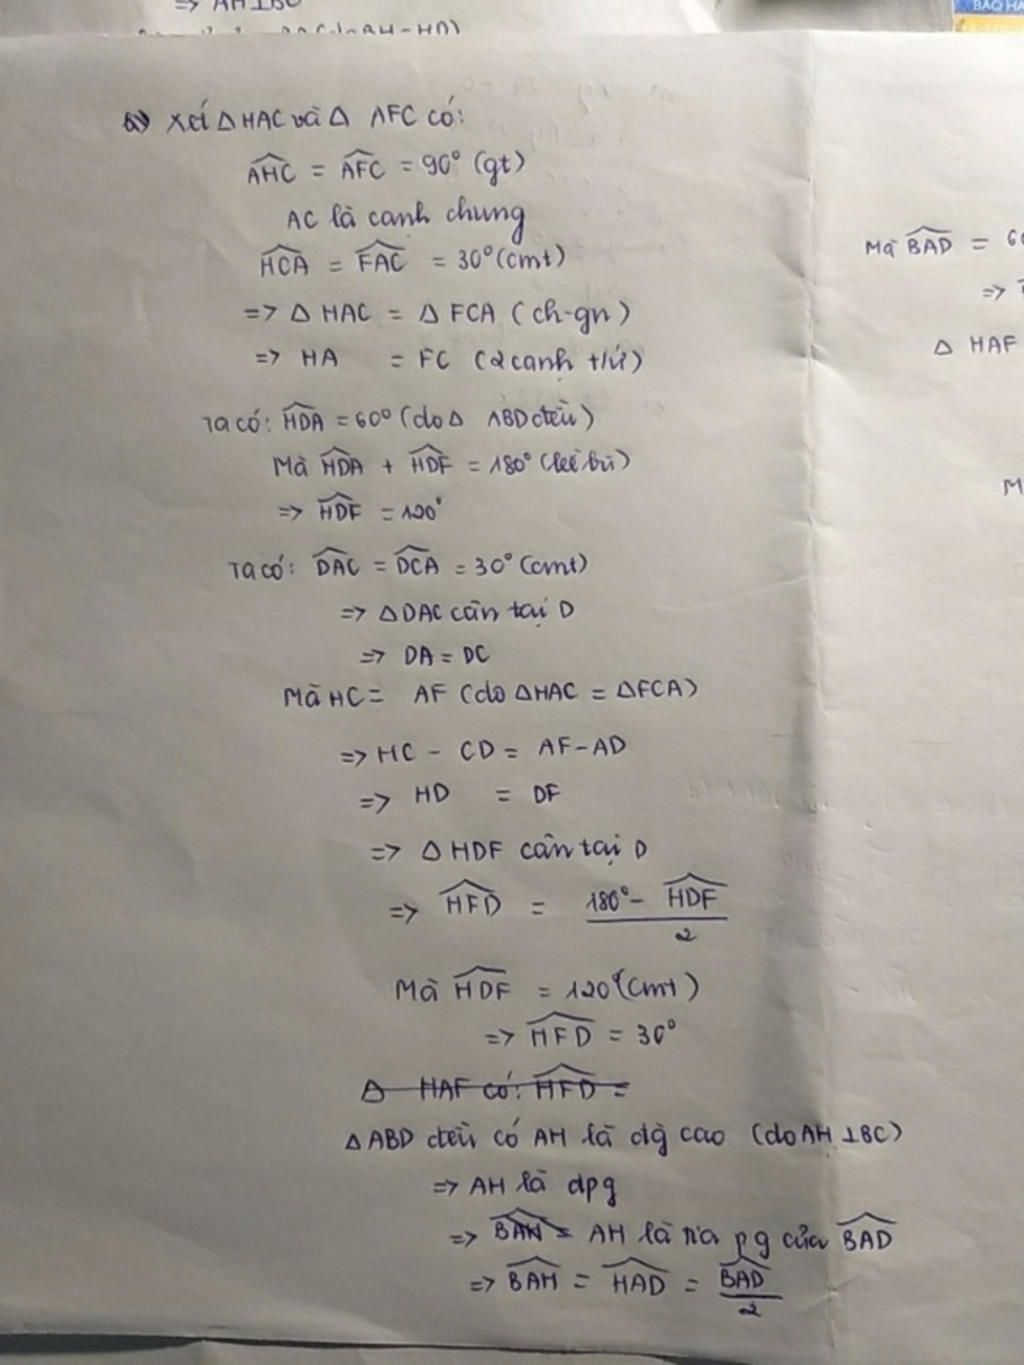 => AH⊥BC
BẢO HÀ
b) Xét Δ HAC và Δ AFC có:
AHC = AFC = 90° (gt)
AC là cạnh chung
HCA = FAC = 30° (cmt)
=> Δ HAC = Δ FCA (ch-gn)
=> HA = FC (2 cạnh t/ứ)
Ta có: HDA = 60° (do Δ ABD đều)
Mà HDA + HDF = 180° (kề bù)
=> HDF = 120°
Ta có: DAC = DCA = 30° (cmt)
=> Δ DAC cân tại D
=> DA = DC
Mà HC = AF (do Δ HAC = Δ FCA)
=> HC - CD = AF - AD
=> HD = DF
=> Δ HDF cân tại D
=> HFD = 180° - HDF
2
Mà HDF = 120° (cmt)
=> HFD = 30°
Δ HAF có: HFD =
Δ ABD đều có AH là đg cao (do AH ⊥ BC)
=> AH là đpg
=> BAH = AH là tia pg của BAD
=> BAH = HAD = BAD
2
Mà BAD = 60
=>
Δ HAF
M